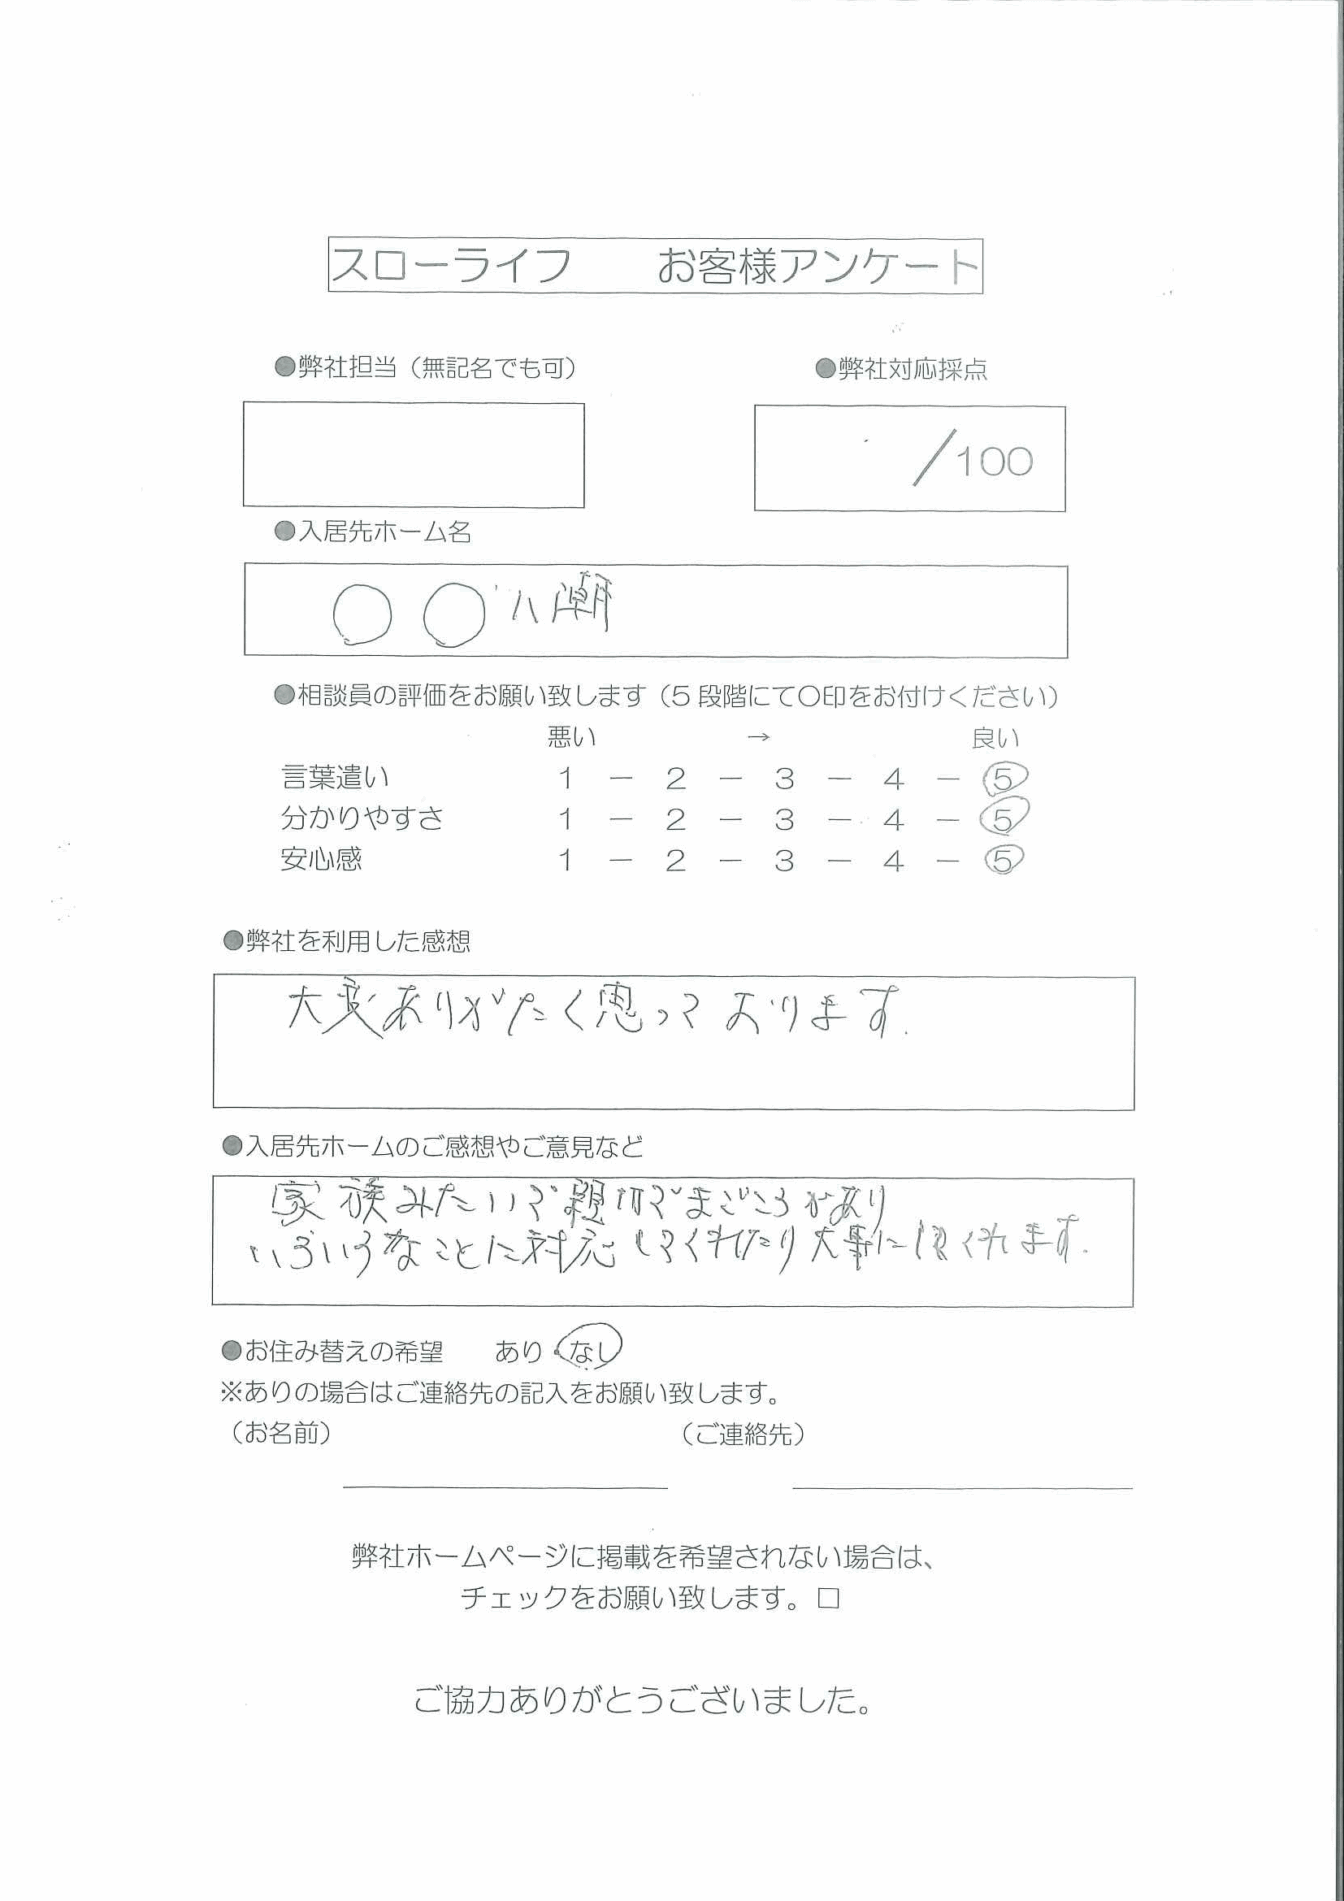 スローライフ　　お客様アンケート
●弊社担当（無記名でも可）　●弊社対応採点
/100
●入居先ホーム名
○○八潮
●相談員の評価をお願い致します（5段階にて〇印をお付けください）
悪い　→　良い
言葉遣い　1 － 2 － 3 － 4 － 5
分かりやすさ　1 － 2 － 3 － 4 － 5
安心感　1 － 2 － 3 － 4 － 5
●弊社を利用した感想
大変ありがたく思っております.
●入居先ホームのご感想やご意見など
家族みたいで親切でまごころがあり
いろいろなことに対応してくれたり大事にくれます.
●お住み替えの希望　あり・なし
※ありの場合はご連絡先の記入をお願い致します。
（お名前）　（ご連絡先）
弊社ホームページに掲載を希望されない場合は、
チェックをお願い致します。□
ご協力ありがとうございました。